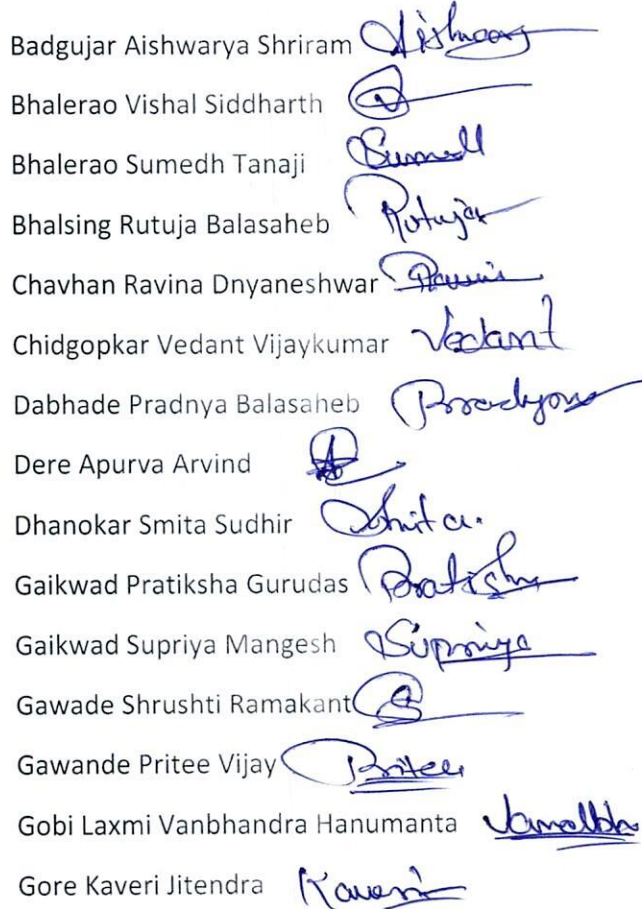 Badgujar Aishwarya Shriram
Bhalerao Vishal Siddharth
Bhalerao Sumedh Tanaji
Bhalsing Rutuja Balasaheb Rutuja
Chavhan Ravina Dnyaneshwar
Chidgopkar Vedant Vijaykumar Vedant
Dabhade Pradnya Balasaheb
Dere Apurva Arvind
Dhanokar Smita Sudhir Smita.
Gaikwad Pratiksha Gurudas
Gaikwad Supriya Mangesh Supriya
Gawade Shrushti Ramakant
Gawande Pritee Vijay Pritee
Gobi Laxmi Vanbhandra Hanumanta
Gore Kaveri Jitendra Kaveri